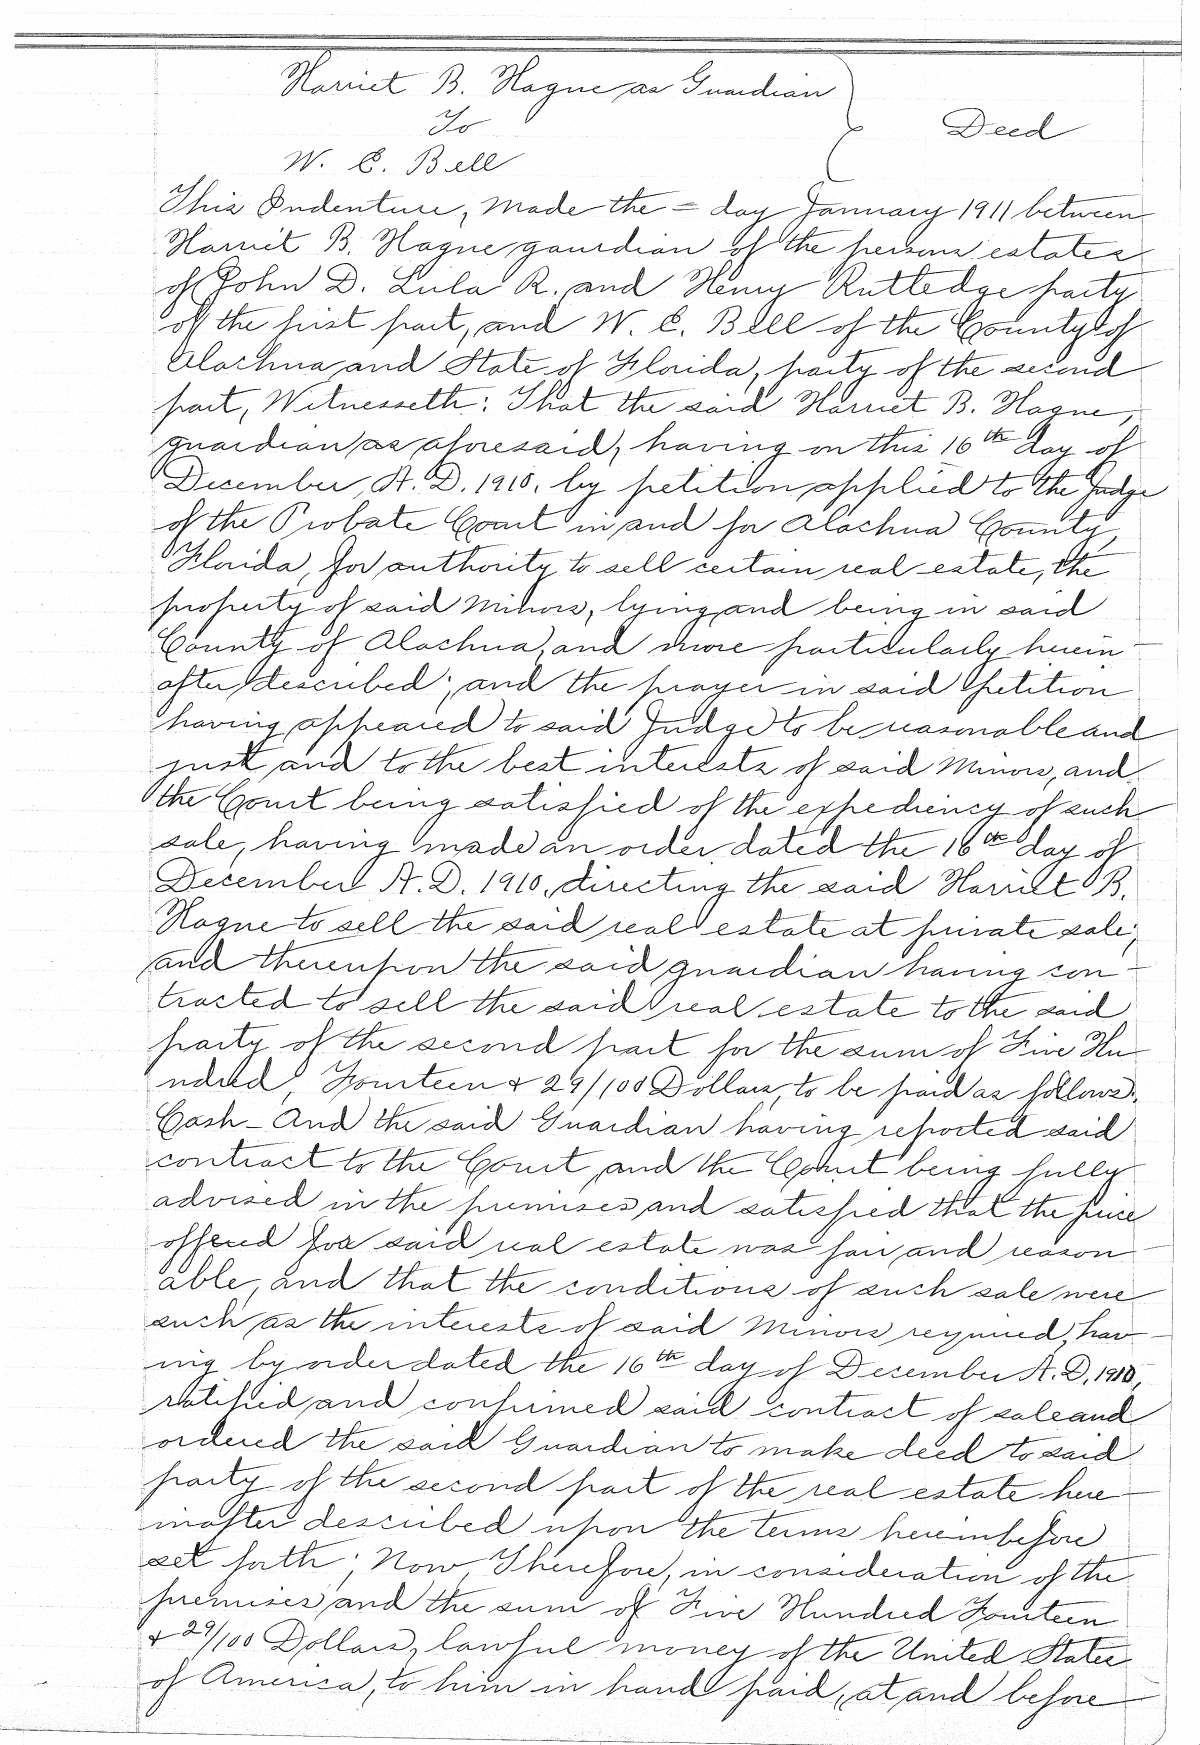 Harriet B. Hague as Guardian
To
Deed
W. E. Bell
This Indenture, Made the = day January 1911 between
Harriet B. Hague gaurdian of the persons estates
of John D. Lula R. and Henry Rutledge party
of the first part, and W. E. Bell of the County of
Alachua and State of Florida, party of the second
part, Witnesseth: That the said Harriet B. Hague,
guardian as aforesaid, having on this 16th day of
December, A. D. 1910, by petition applied to the Judge
of the Probate Court in and for Alachua County,
Florida, for authority to sell certain real estate, the
property of said Minors, lying and being in said
County of Alachua, and more particularly herein-
after described; and the prayer in said petition
having appeared to said Judge to be reasonable and
just and to the best interests of said Minors, and
the Court being satisfied of the expediency of such
sale, having made an order dated the 16th day of
December A. D. 1910, directing the said Harriet B.
Hague to sell the said real estate at private sale;
and thereupon the said guardian having con-
tracted to sell the said real estate to the said
party of the second part for the sum of Five Hu-
ndred, Fourteen & 29/100 Dollars, to be paid as follows:
Cash - And the said Guardian having reported said
contract to the Court, and the Court being fully
advised in the premises and satisfied that the price
offered for said real estate was fair and reason-
able, and that the conditions of such sale were
such as the interests of said Minors required, hav-
ing by order dated the 16th day of December A. D. 1910,
ratified and confirmed said contract of sale and
ordered the said Guardian to make deed to said
party of the second part of the real estate here-
inafter described upon the terms hereinbefore
set forth; Now, Therefore, in consideration of the
premises and the sum of Five Hundred Fourteen
& 29/100 Dollars, lawful money of the United States
of America, to him in hand paid, at and before